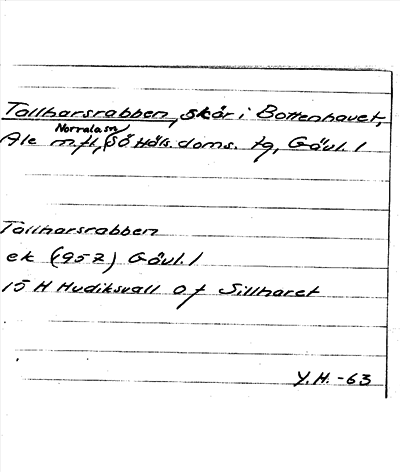 Tallharsrabben, skär i Bottenhavet,
Norrala sn
Ale m.fl., SÖ Häls. doms. tg, Gävl. l
Tallharsrabben
ek (1957) Gävl. l
15 H Hudiksvall 0 f Sillharet
Y.H. -63